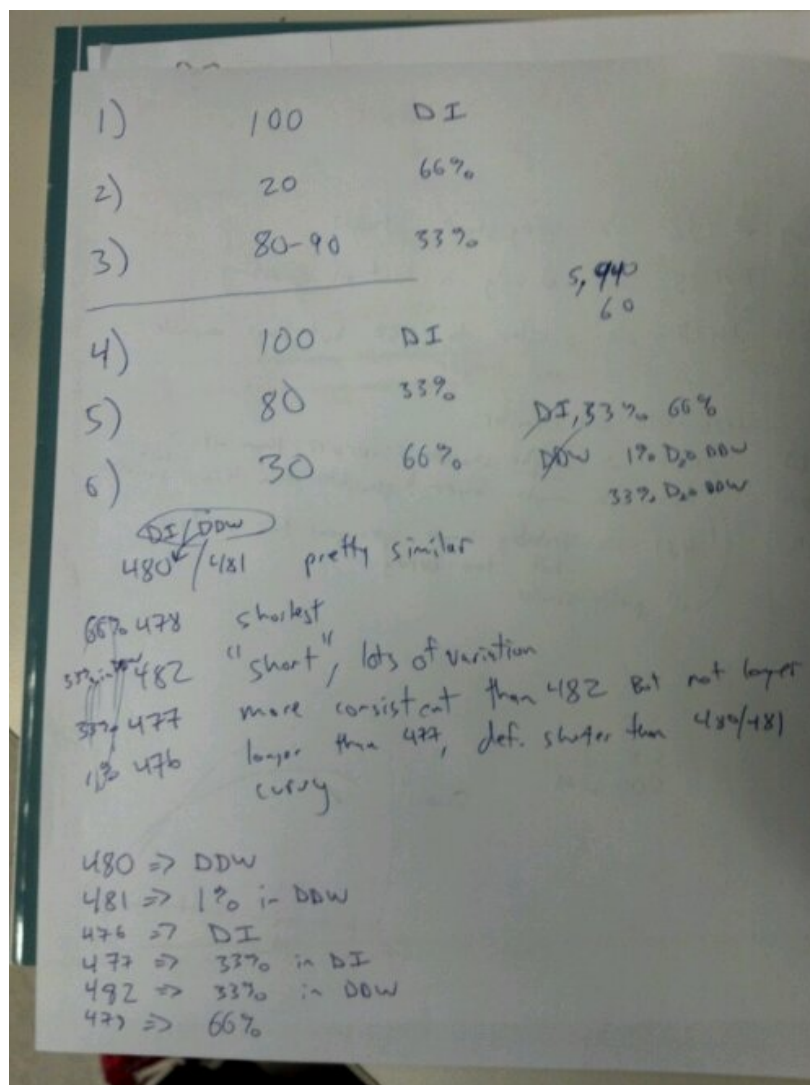 1) 100 DI
2) 20 66%
3) 80-90 33%
5,940
60
4) 100 DI
5) 80 33%
6) 30 66%
DI, 33% 66%
DDW 1% D2O DDW
33% D2O DDW
DI/DDW
480/481 pretty similar
66% 478 shortest
33% in 482 "short", lots of variation
33% 477 more consistent than 482 But not longer
1% 476 longer than 477, def. shorter than 480/481
curvy
480 => DDW
481 => 1% in DDW
476 => DI
477 => 33% in DI
482 => 33% in DDW
=> 66%